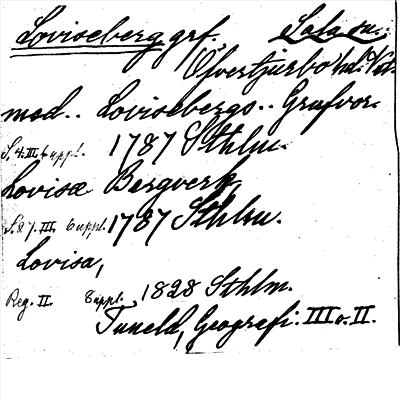 Loviseberg grf. Sala sn.
Öfvertjurbo hd. Vstm.
med. Lovisebergs Grufvor.
S. 4. III. 6 uppl. 1787 Sthlm.
Lovisæ Bergverk,
S. 27. III. 6 uppl. 1787 Sthlm.
Lovisa,
Reg. II. 8 uppl. 1828 Sthlm.
Tuneld, Geografi. III o. II.